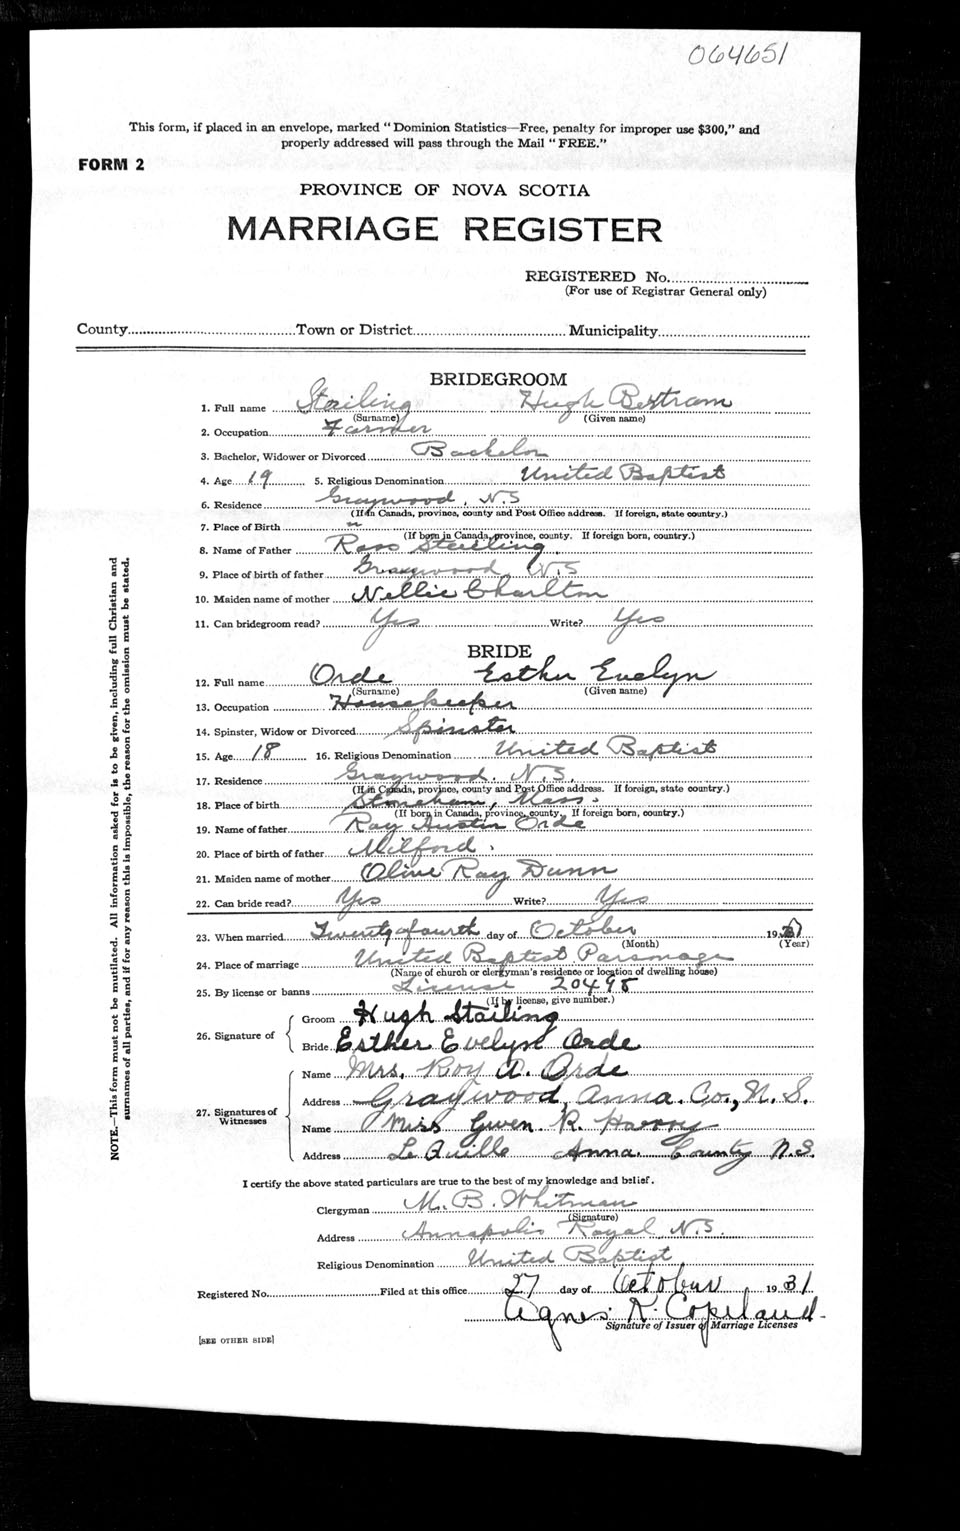 064651
This form, if placed in an envelope, marked "Dominion Statistics—Free, penalty for improper use $300," and
properly addressed will pass through the Mail "FREE."
FORM 2
PROVINCE OF NOVA SCOTIA
MARRIAGE REGISTER
REGISTERED No.
(For use of Registrar General only)
County Town or District Municipality
BRIDEGROOM
1. Full name Stailing Hugh Bertram
(Surname) (Given name)
2. Occupation Farmer
3. Bachelor, Widower or Divorced Bachelor
4. Age 19 5. Religious Denomination United Baptist
6. Residence Graywood, N.S
(If in Canada, province, county and Post Office address. If foreign, state country.)
7. Place of Birth "
(If born in Canada, province, county. If foreign born, country.)
8. Name of Father Ross Stailing
9. Place of birth of father Graywood N.S
10. Maiden name of mother Nellie Charlton
11. Can bridegroom read? Yes Write? Yes
BRIDE
12. Full name Orde Esther Evelyn
(Surname) (Given name)
13. Occupation Housekeeper
14. Spinster, Widow or Divorced Spinster
15. Age 18 16. Religious Denomination United Baptist
17. Residence Graywood, N.S.
(If in Canada, province, county and Post Office address. If foreign, state country.)
18. Place of birth Stoneham, Mass.
(If born in Canada, province, county. If foreign born, country.)
19. Name of father Ray Austin Orde
20. Place of birth of father Milford.
21. Maiden name of mother Olive Ray Dunn
22. Can bride read? Yes Write? Yes
23. When married Twenty fourth day of October 193
(Month) (Year)
24. Place of marriage United Baptist Parsonage
(Name of church or clergyman's residence or location of dwelling house)
25. By license or banns License 20498
(If by license, give number.)
26. Signature of
Groom Hugh Stailing
Bride Esther Evelyn Orde
27. Signatures of Witnesses
Name Mrs. Roy A. Orde
Address Graywood, Anna. Co., N.S.
Name Miss Gwen R.
Address Le Quille Anna. County N.S.
I certify the above stated particulars are true to the best of my knowledge and belief.
Clergyman M. B. Whitman
(Signature)
Address Annapolis Royal, N.S.
Religious Denomination United Baptist
Registered No. Filed at this office 27 day of October 1931
Agnes K. Copeland
Signature of Issuer of Marriage Licenses
[SEE OTHER SIDE]
NOTE.—This form must not be mutilated. All information asked for is to be given, including full Christian and
surnames of all parties, and if for any reason this is impossible, the reason for the omission must be stated.